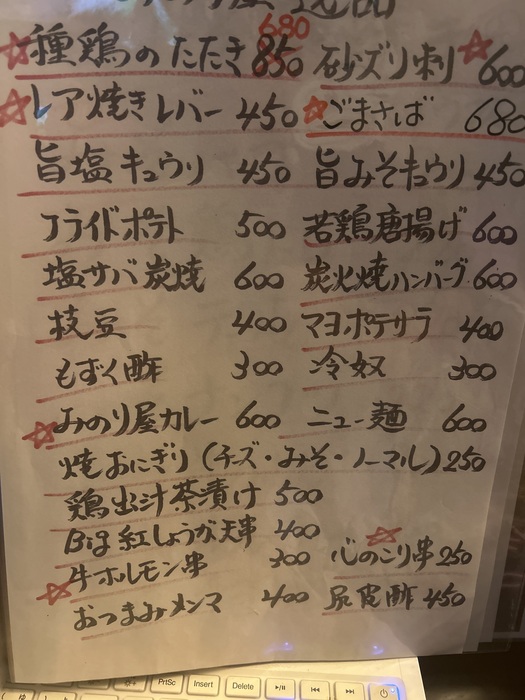 680
種鶏のたたき 850 砂ズリ刺し 600
レア焼きレバー 450 ごまさば 680
旨塩キュウリ 450 旨みそキュウリ 450
フライドポテト 500 若鶏唐揚げ 600
塩サバ炭焼 600 炭火焼ハンバーグ 600
枝豆 400 マヨポテサラ 400
もずく酢 300 冷奴 300
みのり屋カレー 600 ニュー麺 600
焼おにぎり (チーズ・みそ・ノーマル) 250
鶏出汁茶漬け 500
Big紅しょうが天串 400
牛ホルモン串 300 心のこり串 250
おつまみメンマ 400 尻皮酢 450
PrtSc Insert Delete